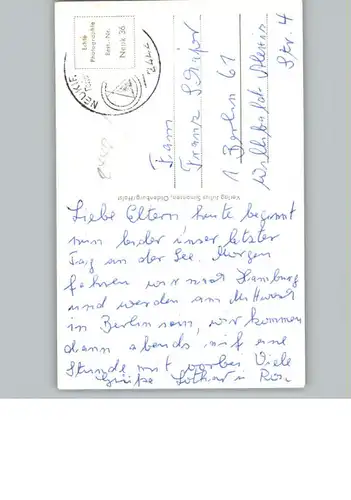 Echte
Photographie
Best.-Nr.
Neuk 36
NEUKI
2442
Familie
Franz
1 Berlin 61
Str. 4
Verlag Julius Simonsen, Oldenburg/Holst
Liebe Eltern heute beginnt
nun leider unser letzter
Tag an der See. Morgen
fahren wir nach Hamburg
und werden am
in Berlin sein, wir kommen
dann abends auf eine
Stunde mit vorbei Viele
Grüße Lothar u